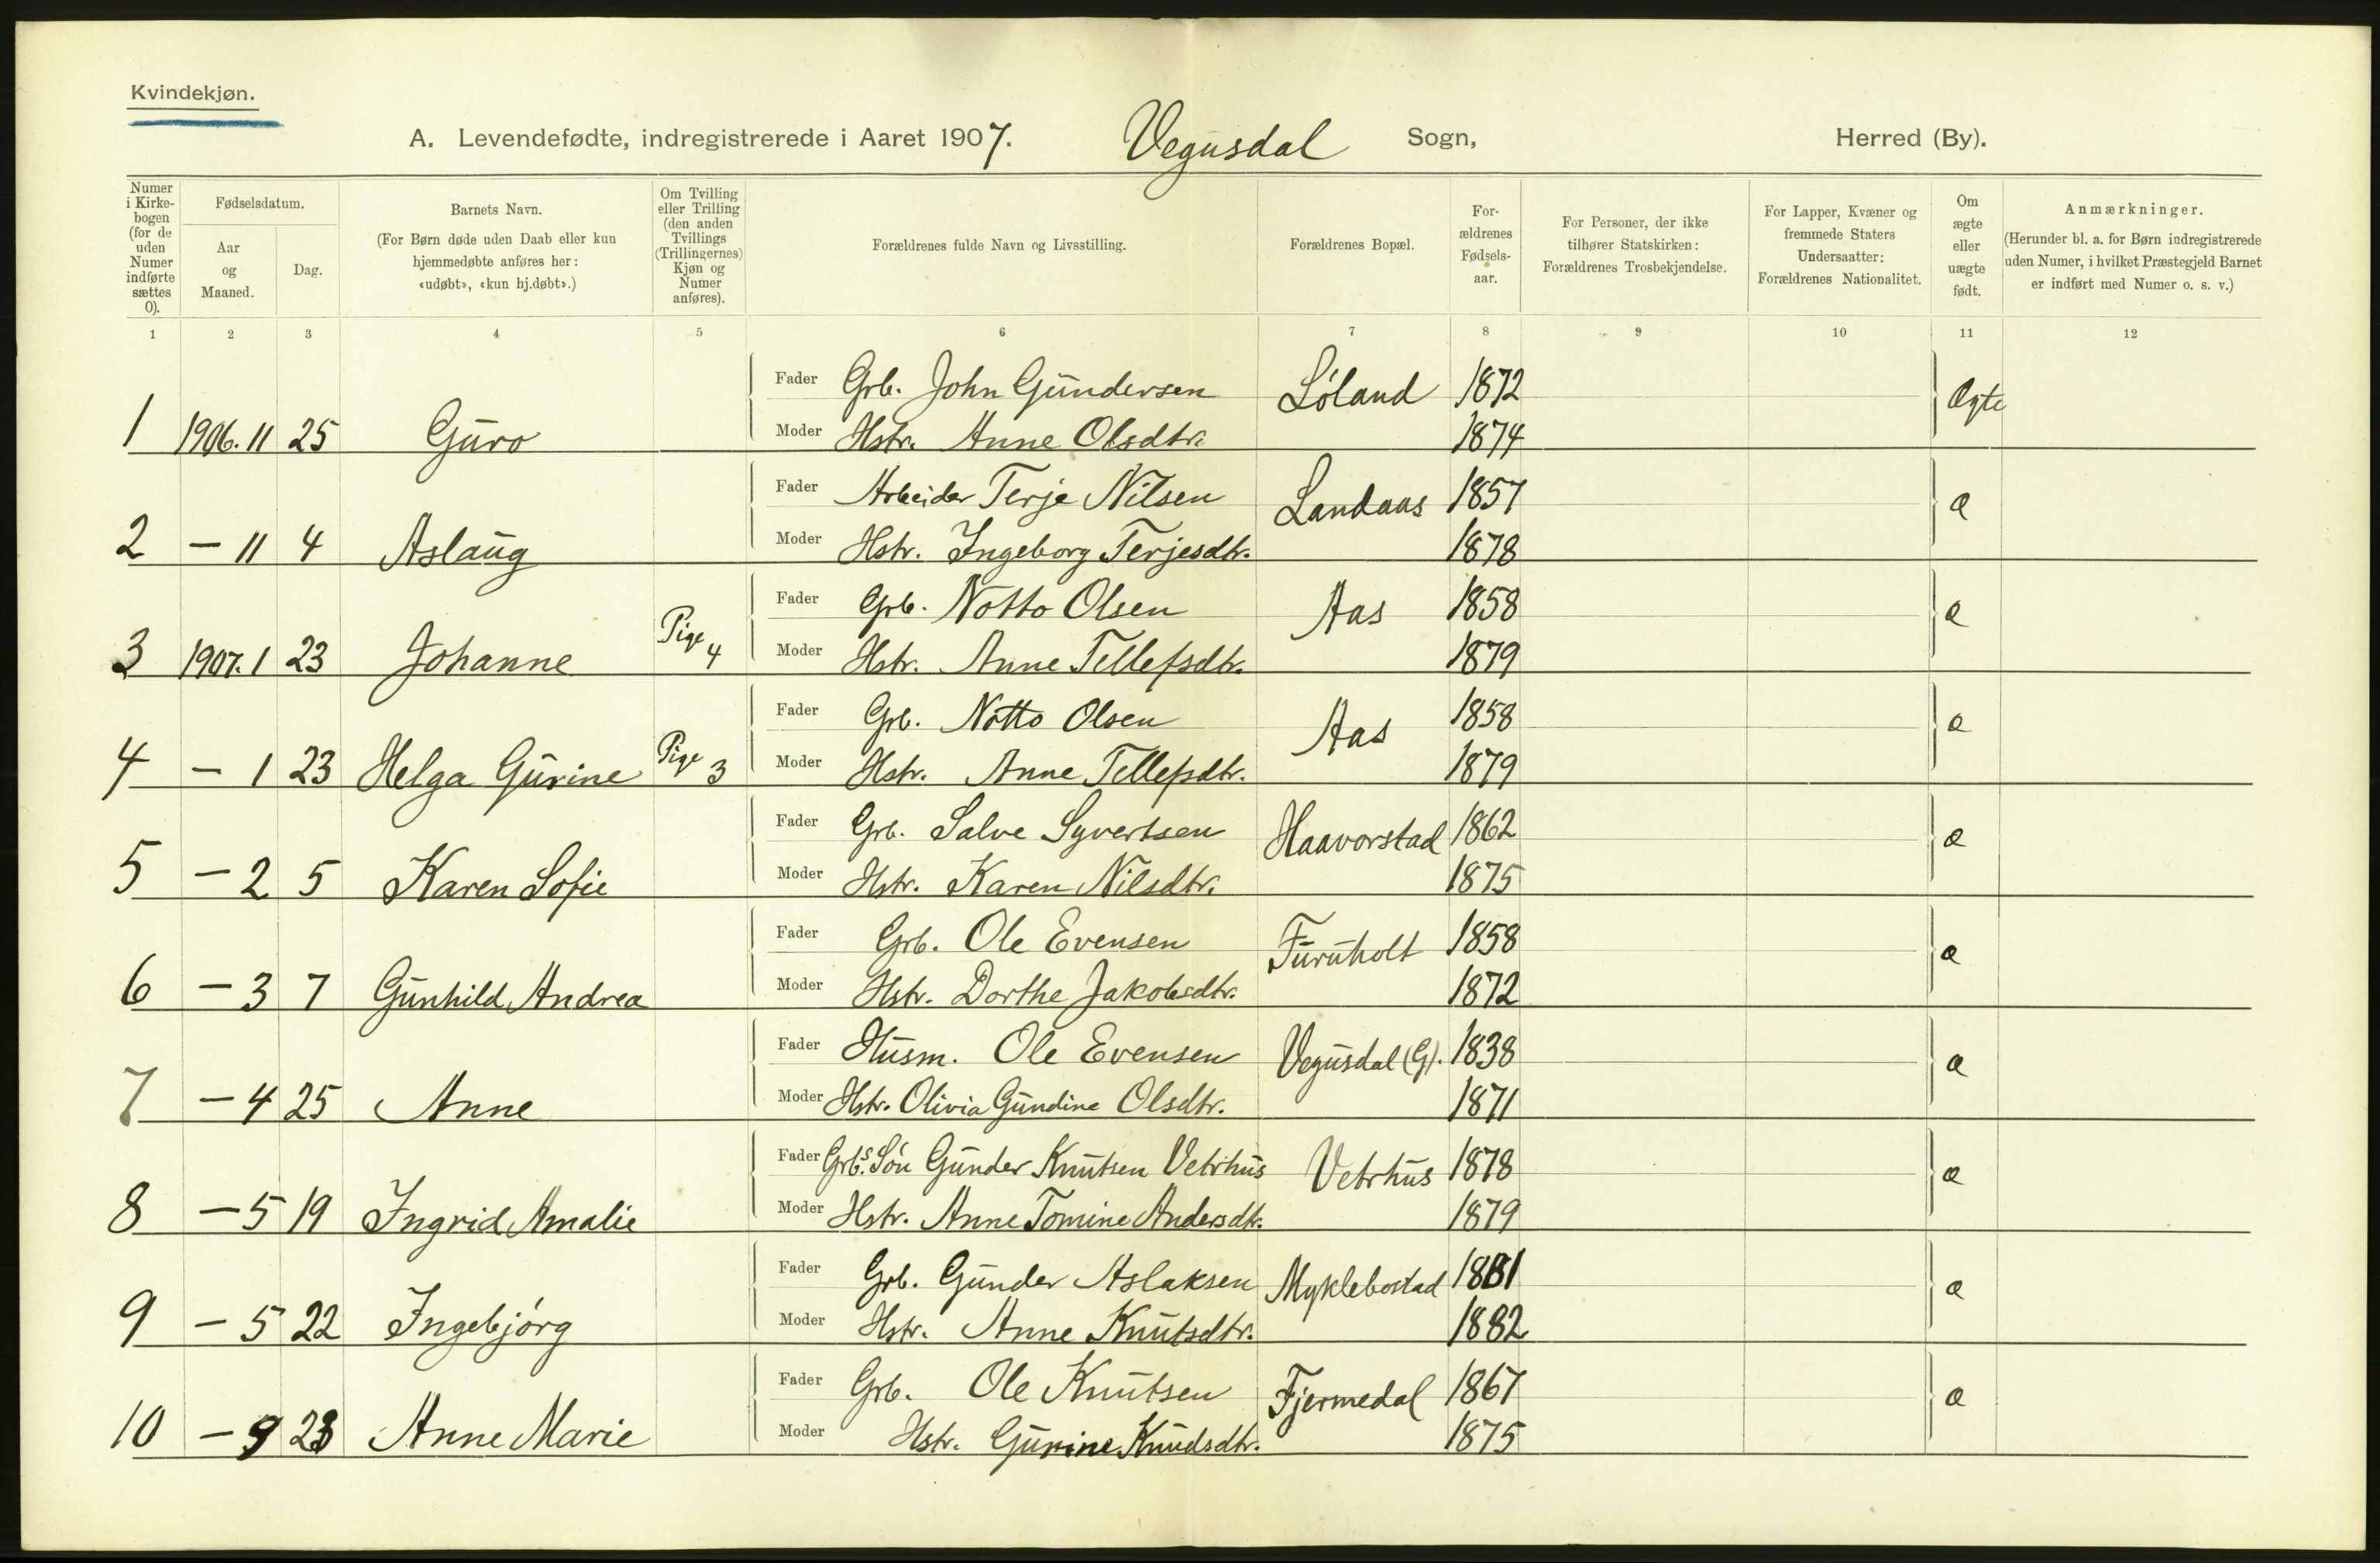 Kvindekjøn.
A. Levendefødte, indregistrerede i Aaret 1907. Vegusdal Sogn, Herred (By).
Numer i Kirke-bogen (for de uden Numer indførte sættes 0).
Fødselsdatum.
Aar og Maaned.
Dag.
Barnets Navn.
(For Børn døde uden Daab eller kun hjemmedøbte anføres her: «udøbt», «kun hj.døbt».)
Om Tvilling eller Trilling (den anden Tvillings (Trillingernes) Kjøn og Numer anføres).
Forældrenes fulde Navn og Livsstilling.
Forældrenes Bopæl.
For-ældrenes Fødsels-aar.
For Personer, der ikke tilhører Statskirken: Forældrenes Trosbekjendelse.
For Lapper, Kvæner og fremmede Staters Undersaatter: Forældrenes Nationalitet.
Om ægte eller uægte født.
Anmærkninger.
(Herunder bl. a. for Børn indregistrerede uden Numer, i hvilket Præstegjeld Barnet er indført med Numer o. s. v.)
1 2 3 4 5 6 7 8 9 10 11 12
Fader Grb. John Gundersen Løland 1872 Ægte
1 1906.11 25 Guro Moder Hstr. Anne Olsdtr. 1874
Fader Arbeider Terje Nilsen Landaas 1857 æ
2 — 11 4 Aslaug Moder Hstr. Ingeborg Terjesdtr. 1878
Fader Grb. Notto Olsen Aas 1858 æ
3 1907.1 23 Johanne Pige 4 Moder Hstr. Anne Tellefsdtr. 1879
Fader Grb. Notto Olsen Aas 1858 æ
4 — 1 23 Helga Gurine Pige 3 Moder Hstr. Anne Tellefsdtr. 1879
Fader Grb. Salve Syvertsen Haavorstad 1862 æ
5 — 2 5 Karen Sofie Moder Hstr. Karen Nilsdtr. 1875
Fader Grb. Ole Evensen Furuholt 1858 æ
6 — 3 7 Gunhild Andrea Moder Hstr. Dorthe Jakobsdtr. 1872
Fader Husm. Ole Evensen Vegusdal (G). 1838 æ
7 — 4 25 Anne Moder Hstr. Olivia Gundine Olsdtr. 1871
Fader Grb.s Søn Gunder Knutsen Vetrhus Vetrhus 1878 æ
8 — 5 19 Ingrid Amalie Moder Hstr. Anne Tomine Andersdtr. 1879
Fader Grb. Gunder Aslaksen Myklebostad 1881 æ
9 — 5 22 Ingebjørg Moder Hstr. Anne Knutsdtr. 1882
Fader Grb. Ole Knutsen Fjermedal 1867 æ
10 — 9 23 Anne Marie Moder Hstr. Gurine Knudsdtr. 1875